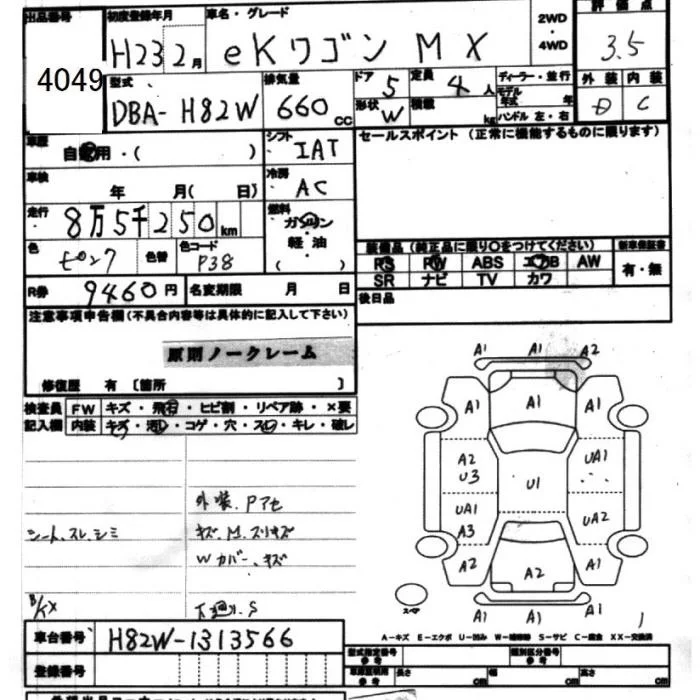 出品番号 初度登録年月 車名・グレード 2WD・4WD 評価点
4049 H23 2月 eKワゴン MX 3.5
型式 排気量 ドア 5 定員 4人 ディーラー・並行 外装 内装
DBA-H82W 660cc 形状 W 積載 kg モデル年式 年 D C
ハンドル 左・右
車歴 自家用・( ) シフト IAT セールスポイント (正常に機能するものに限ります)
車検 年 月( 日) 冷房 AC
走行 8万5千250km 燃料 ガソリン
軽油
( )
色 色替 色コード P38 装備品(純正品に限り○をつけてください) 新車保証書
PS PW ABS エアB AW 有・無
SR ナビ TV カワ
R券 9460円 名変期限 月 日 後日品
注意事項申告欄(不具合内容等は具体的に記入して下さい)
原則ノークレーム
修復歴 有 〔箇所 〕
検査員記入欄 FW キズ・飛石・ヒビ割・リペア跡・×要
内装 キズ・汚レ・コゲ・穴・スレ・キレ・破レ
A1 A1 A2
A1 A1 A1
A2 U3 UA1
U1
UA1 A3 UA2
A2 A2 A1
A1 A1 A1
外装 Pアセ
シート、スレ、シミ キズ、M、スリキズ
Wカバー、キズ
下廻り、S
スペア
1
A-キズ E-エクボ U-凹み W-補修跡 S-サビ C-腐食 XX-交換済
車台番号 H82W-1313566 型式指定番号 参考 類別区分番号 参考
登録番号 参考 長さ cm 幅 cm 高さ cm